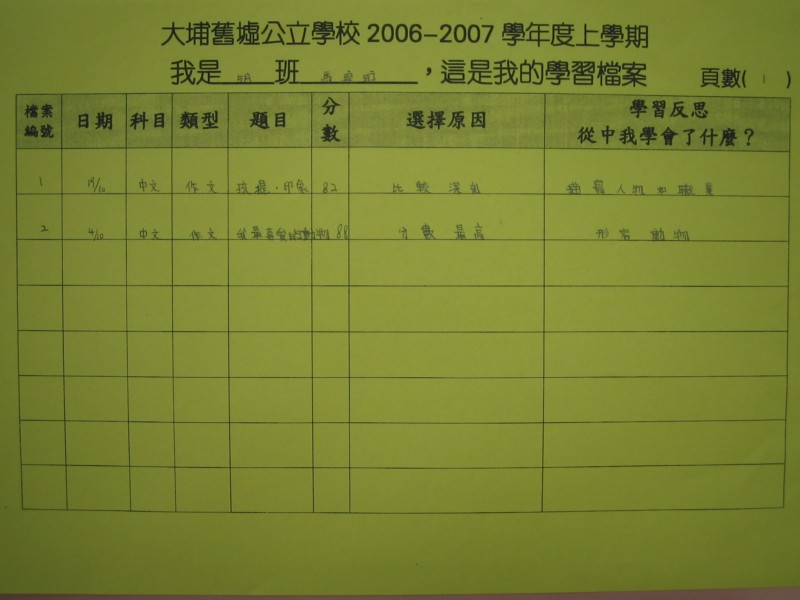 大埔舊墟公立學校 2006–2007 學年度上學期
我是 班 ，這是我的學習檔案 頁數( 1 )
檔案編號 日期 科目 類型 題目 分數 選擇原因 學習反思 從中我學會了什麼？
1 19/10 中文 作文 印象 82 比較深刻 人物和職業
2 4/10 中文 作文 我最喜愛的動物 88 分數最高 形容動物